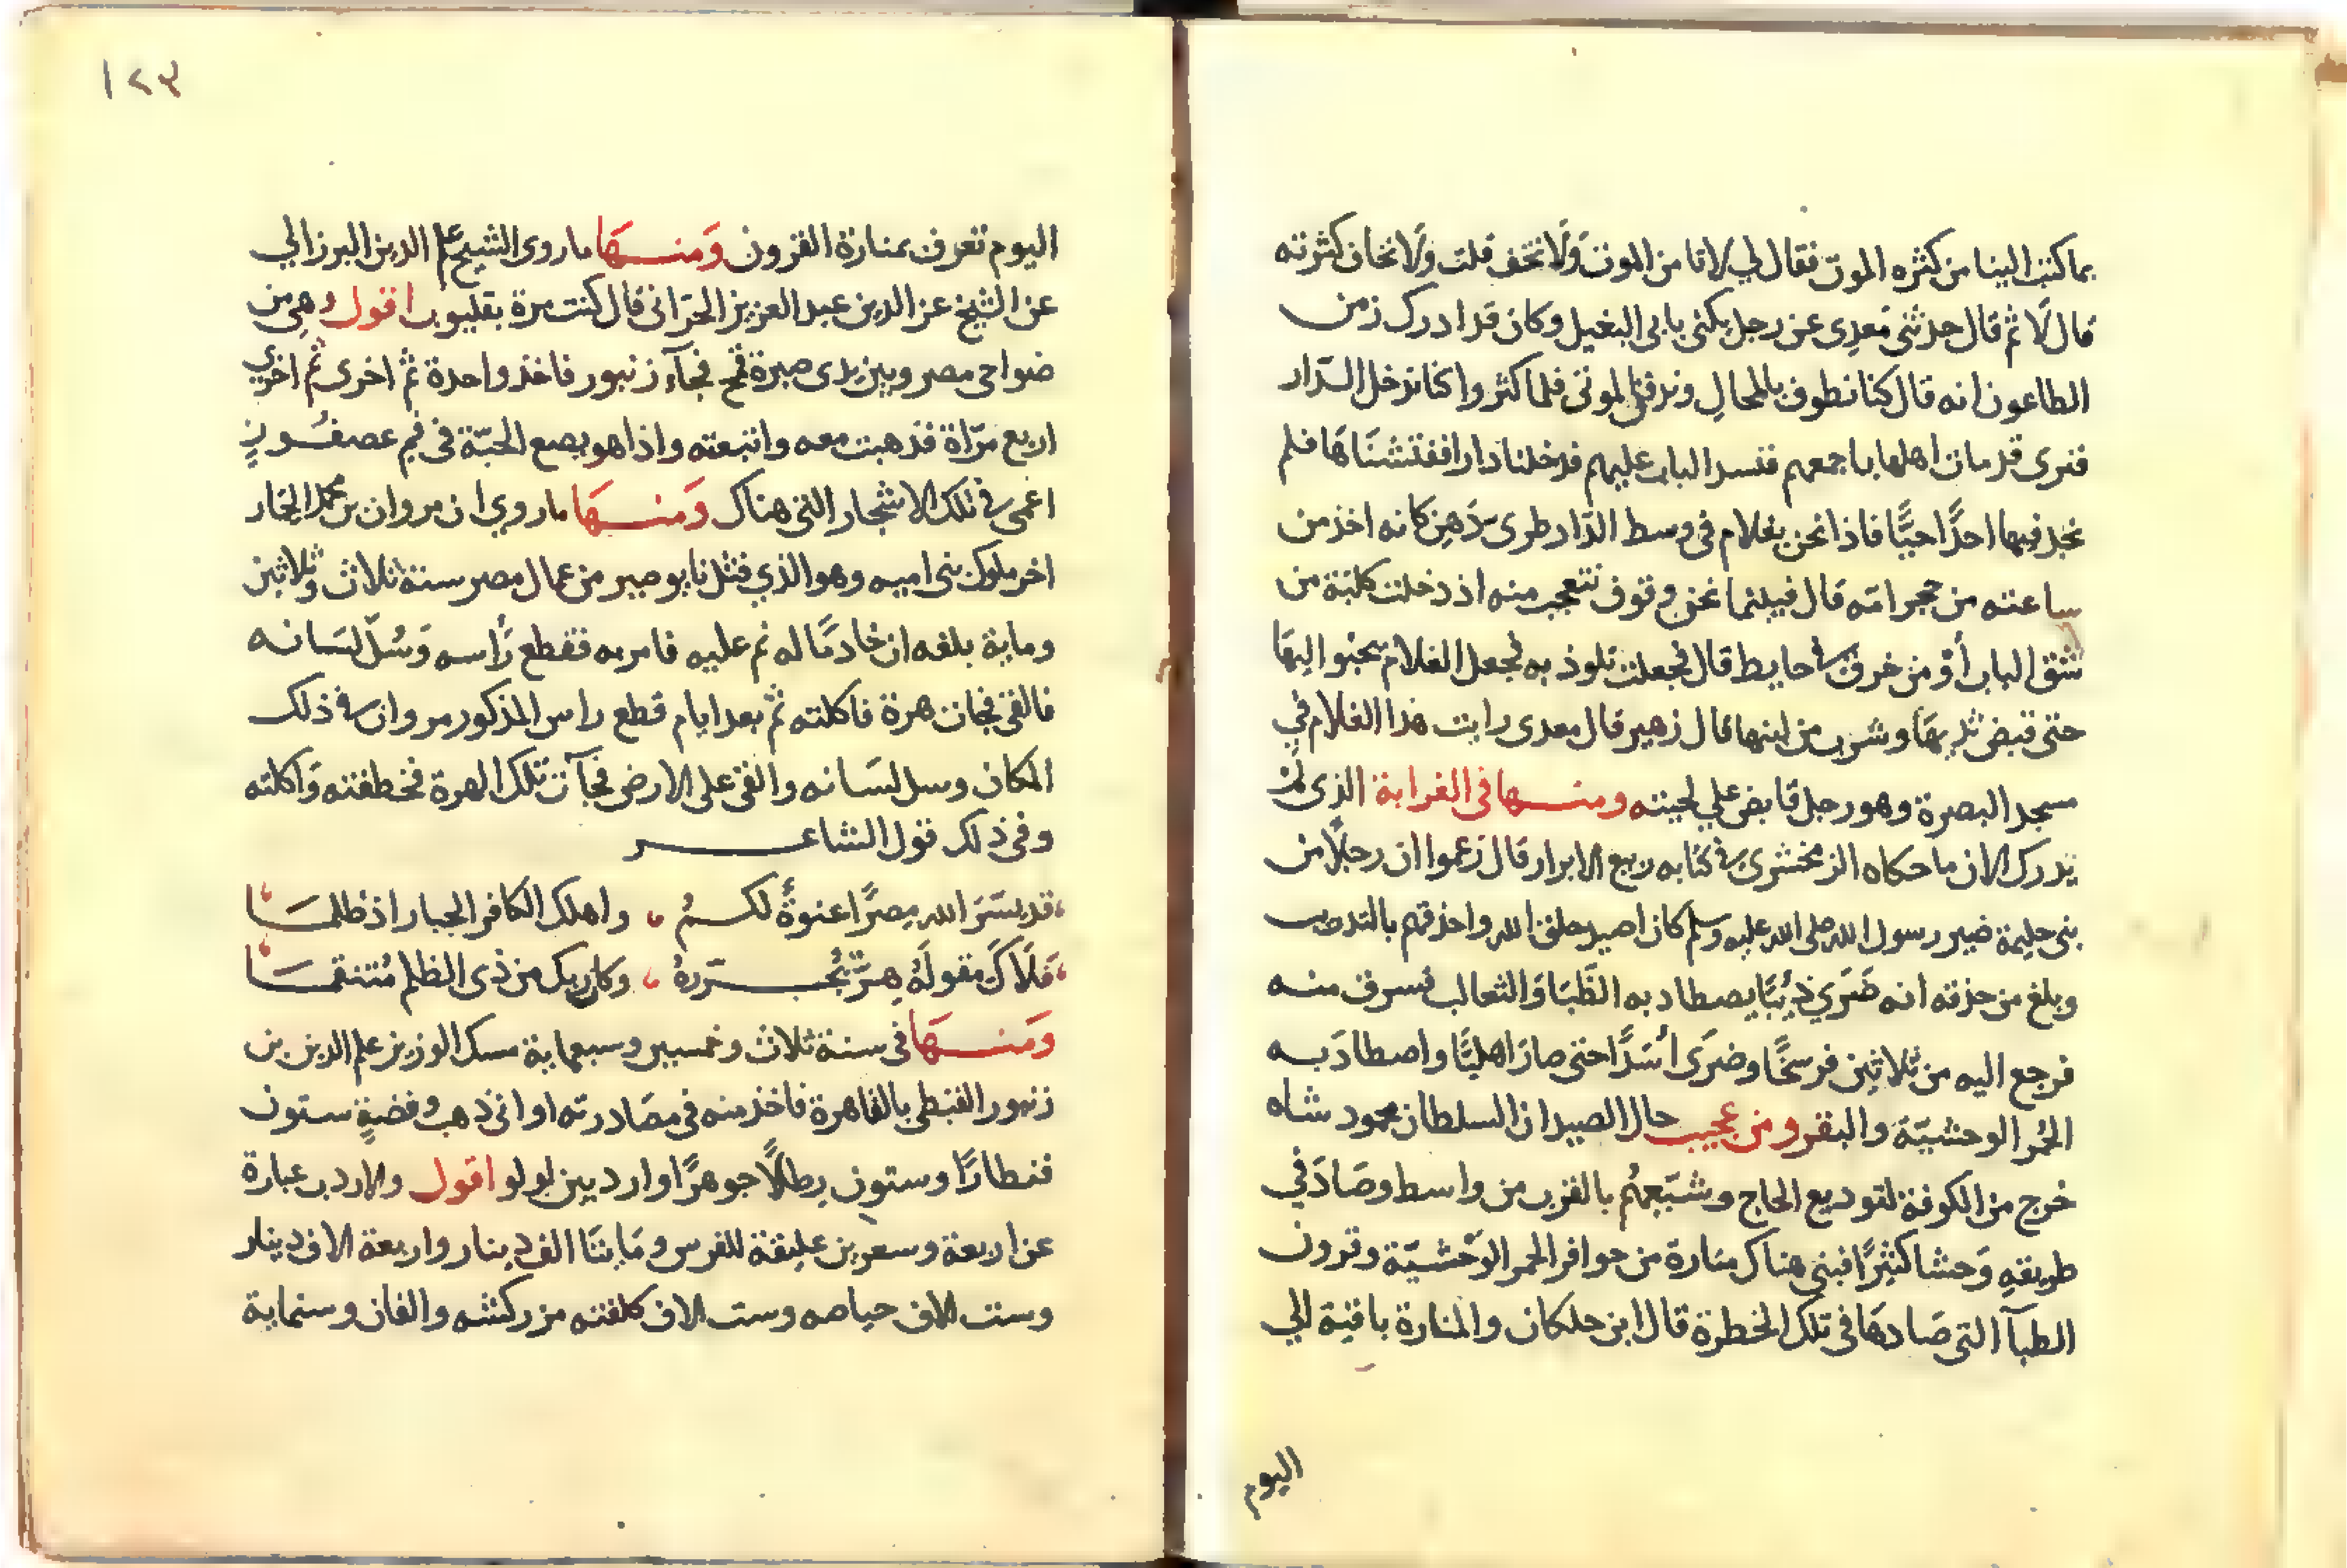 بما كنت الينا من كثره الموت فقال لي لا انا من الموت وَلَا نخف قلت ولَا نخاف كثرته
قال لَا ثم قال حدثنى مَعدِى عن رجل يكنى بابى البغيل وكان قد ادرك زمن
الطاعون انه قال كنا نطوف بالمحالِ وندفن الموتى فلما كثروا كنا ندخل الدّار
فنرى قد مات اهلها باجمعهم فنسد الباب عليهم فدخلنا دارا ففتشنَاهَا فلم
نجد فيها احدًا حيًّا فاذا نحن بغلام فى وسط الدّار طرى دَهِن كانه اخذ من
ساعته من حجر امّه قال فبينما نحن وقوف نتعجب منه اذ دخلت كلبة من
شق الباب أوْ من خرق فى حايط قال فجعلت تلوذ به فجعل الغلام يحبوا اليهَا
حتى قبض ثديهَا وشرب من لبنها قال زهير قال معدى رايت هذا الغلام في
مسجد البصرة وهو رجل قابض علي لحيته ومنها فى الغرابة الذى لمْ
يدرك الان ما حكاه الزمخشرى فى كتابه ربيع الابرار قال زعموا ان رجلًا من
بنى حليمة ضير رسول الله صلى الله عليه وسلم كان اصيد خلق الله واحذقهم بالتدريب
وبلغ من حذقه انه ضَرَي ذئبًا يصطاد به الظّبَا وَالثعالب فسرق منه
فرجع اليه من ثلاثين فرسخًا وضرَى أسَدًا حتى صارَ اهليًّا واصطادَ به
الحُمر الوحشيّة والبقر ومن عجيب حال الصيد ان السلطان محمود شاه
خرج من الكوفة لتوديع الحاج وشيّعهُم بالقرب من واسط وصَادَ في
طريقهِ وَحشا كثيرًا فبنى هناك منارة من حوافر الحمر الوَحشيّة وقرون
الطبآ التى صَادهَا فى تلك الخطرة قال ابن حلكان والمنارة باقية الي
اليوم
١٢٣
اليوم تعرف بمنارة القرون وَمنهَا ما روى الشيخ علم الدين البرزالي
عن الشيخ عز الدين عبد العزيز الحرّانى قال كنت مرة بقليوب اقول وهِي من
ضواحى مصر وبين يدى صبرة قمح فجآء زنبور فاخذ واحدة ثم اخرى ثم اخرى
اربع مرّاة فذهبت معه واتبعته واذا هو يضع الحبّة فى فم عصفُورٍ
اعمى فى تلك الاشجار التى هناك وَمنهَا ما روي ان مروان بن محمد الحمار
اخر ملوك بنى اميه وهو الذي قتل نابوصير من عمال مصر سنة ثلاث وثلاثين
وماية بلغه ان خادمًا له نم عليه فامر به فقطع رأسه وَسُلّ لسَانه
فالقى فجات هرة فاكلته ثم بعد ايام قطع راس المذكور مروان فى ذلك
المكان وسل لسَانه والقى على الارض فجآت تَلك الهرة فخطفته وَاكلته
وفى ذلك قول الشاعر
قد يسّرَ الله مِصرًا عنوةً لكمُ ، واهلك الكافر الجبار اذ ظلمَا
فَلَاكَ مقولَهُ هِرٌّ يُجرّرهُ ، وكان ربك من ذى الظلم مُنتقمَا
وَمنهَا فى سنة ثلاث وخمسين وسبعماية مسك الوزير علم الدين بن
زنبور القبطى بالقاهرة فاخذ منه فى مصَادرته اوانى ذهب وفضةٍ ستون
قنطارًا وستون رطلًا جوهرًا واردبين لولو اقول والاردب عبارة
عن اربعة وسعرين عليقة للفرس ومَايتَا الف دينار واربعة الاف دينار
وست الاف حياصه وست الاف كلفته مزركشه والفان وستماية